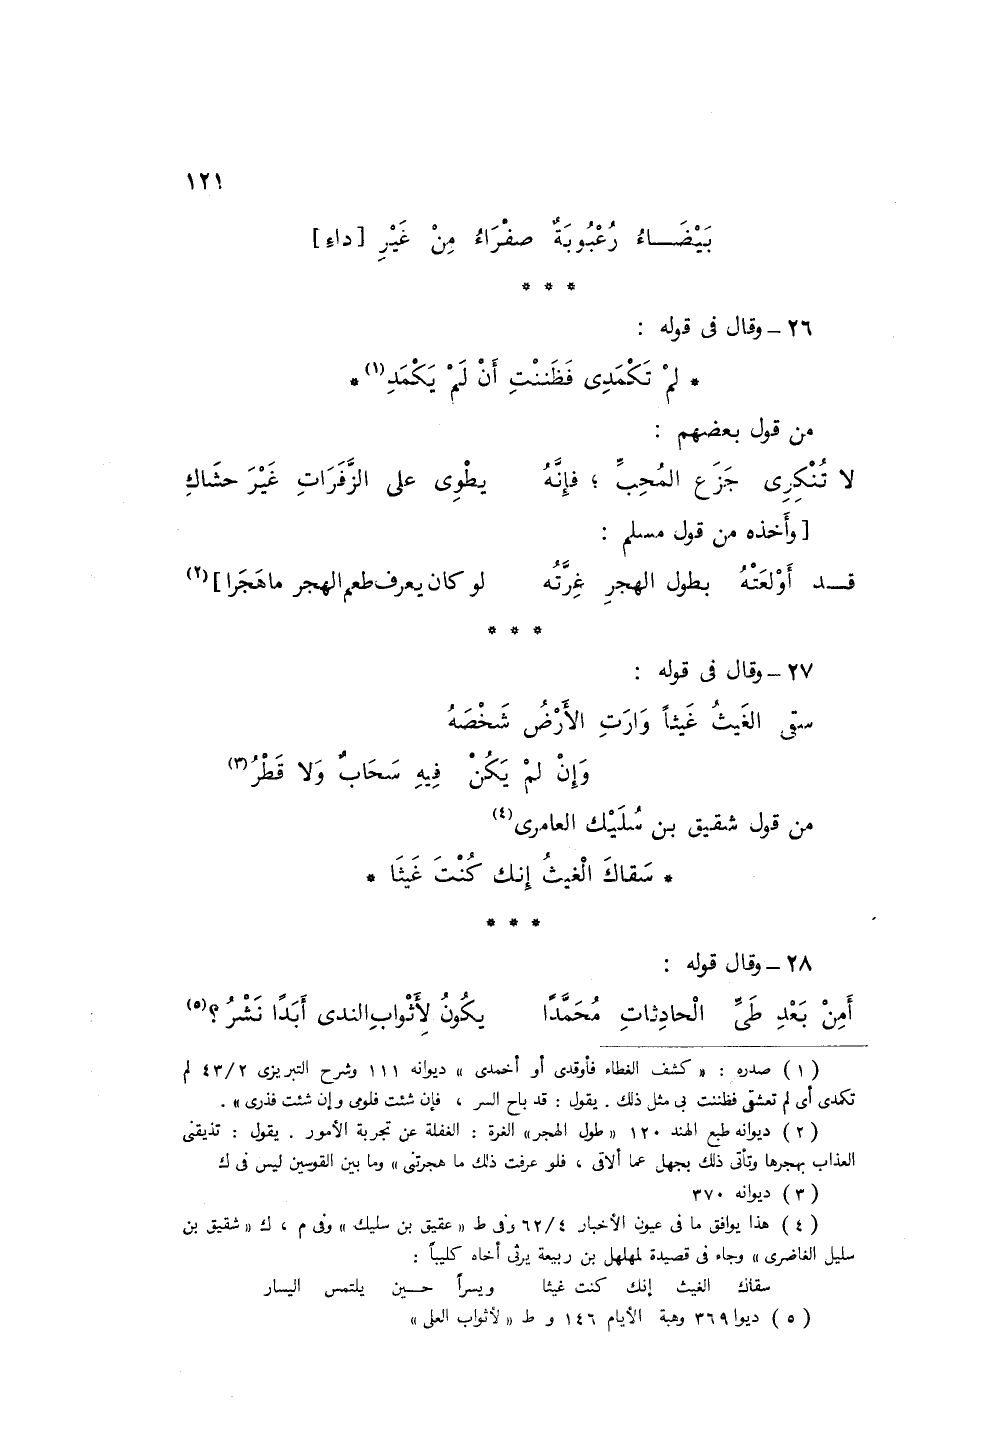 ١٢١
بَيْضَــاءُ رُعْبُوبَةٌ صفْرَاءُ مِنْ غَيْرِ [داءِ]
* * *
٢٦ – وقال فى قوله :
* لمْ تَكْمَدِى فَظَننْتِ أَنْ لَمْ يَكْمَدِ(١) *
من قول بعضهم :
لا تُنْكِرِى جَزَع المُحِبِّ ؛ فإنَّهُ يطْوِى على الزَّفَرَاتِ غَيْرَ حشَاكِ
[وأَخذه من قول مسلم :
قــد أَوْلعَتْهُ بطول الهجرِ غِرَّتُه لو كان يعرف طعم الهجر ما هَجَرا](٢)
* * *
٢٧ – وقال فى قوله :
سقى الغَيثُ غَيثاً وَارَتِ الأَرْضُ شَخْصَهُ
وَإِنْ لمْ يَكُنْ فِيهِ سَحَابٌ وَلا قَطْرُ(٣)
من قول شقيق بن سُلَيْك العامرى(٤)
* سَقاكَ الْغيثُ إنك كُنْتَ غَيثَا *
* * *
٢٨ – وقال قوله :
أَمِنْ بَعْدِ طَىِّ الْحادِثاتِ مُحَمَّدًا يكُونُ لِأَثْوابِ الندى أَبَدًا نَشْرُ ؟(٥)
(١) صدره : « كشف الغطاء فأوقدى أو أخمدى » ديوانه ١١١ وشرح التبريزى ٤٣/٢ لم
تكمدى أى لم تعشقى فظننت بى مثل ذلك . يقول : قد باح السر ، فإن شئت فلومى وإن شئت فذرى » .
(٢) ديوانه طبع الهند ١٢٠ « طول الهجر» الغرة : الغفلة عن تجربة الأمور . يقول : تذيقنى
العذاب بهجرها وتأتى ذلك بجهل عما ألاقى ، فلو عرفت ذلك ما هجرتنى » وما بين القوسين ليس فى ك
(٣) ديوانه ٣٧٠
(٤) هذا يوافق ما فى عيون الأخبار ٦٢/٤ وفى ط « عقيق بن سليك » وفى م ، ك « شقيق بن
سليل الغاضرى » وجاء فى قصيدة لمهلهل بن ربيعة يرثى أخاه كليباً :
سقاك الغيث إنك كنت غيثا ويسراً حــين يلتمس اليسار
(٥) ديوا ٣٦٩ وهبة الأيام ١٤٦ و ط « لأثواب العلى »